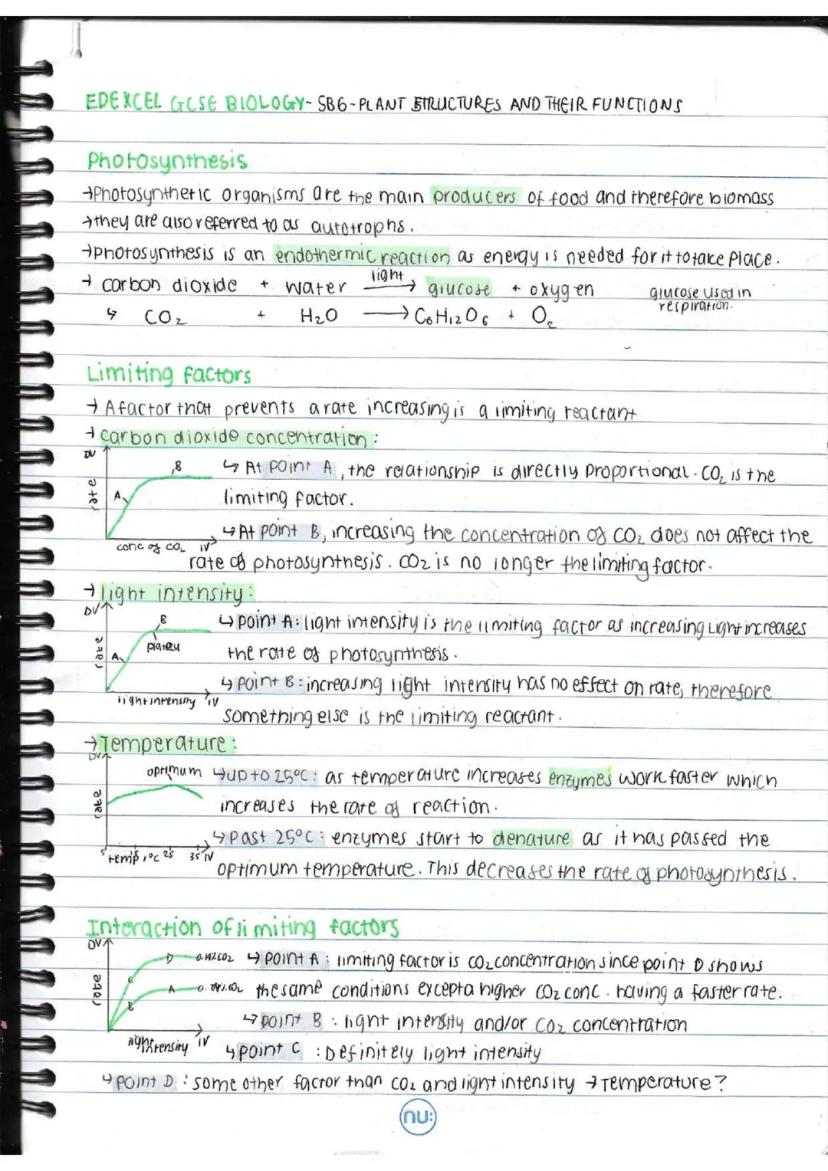 EDEXCEL GCSE BIOLOGY - SB6 - PLANT STRUCTURES AND THEIR FUNCTIONS
Photosynthesis
→Photosynthetic organisms are the main producers of food and therefore biomass
→they are also referred to as autotrophs.
→Photosynthesis is an endothermic reaction as energy is needed for it to take place.
→ carbon dioxide + water light→ glucose + oxygen glucose used in respiration.
↳ CO₂ + H₂O → C₆H₁₂O₆ + O₂
Limiting factors
→ A factor that prevents a rate increasing is a limiting reactant
→ carbon dioxide concentration:
DV
rate
A
B
conc of CO₂ IV
↳ At point A, the relationship is directly proportional. CO₂ is the
limiting factor.
↳ At point B, increasing the concentration of CO₂ does not affect the
rate of photosynthesis. CO₂ is no longer the limiting factor.
→ light intensity:
DV
rate
A
B
plateau
light intensity IV
↳ point A: light intensity is the limiting factor as increasing light increases
the rate of photosynthesis.
↳ point B: increasing light intensity has no effect on rate, therefore
something else is the limiting reactant.
→ Temperature:
DV
rate
optimum
5 temp, °C 25 35 IV
↳ up to 25°C: as temperature increases enzymes work faster which
increases the rate of reaction.
↳ past 25°C: enzymes start to denature as it has passed the
optimum temperature. This decreases the rate of photosynthesis.
Interaction of limiting factors
DV
rate
D
C
A
B
light intensity IV
↳ point A: limiting factor is CO₂ concentration since point D shows
the same conditions except a higher CO₂ conc. having a faster rate.
↳ point B: light intensity and/or CO₂ concentration
↳ point C: Definitely light intensity
↳ point D: some other factor than CO₂ and light intensity → Temperature?
nu: